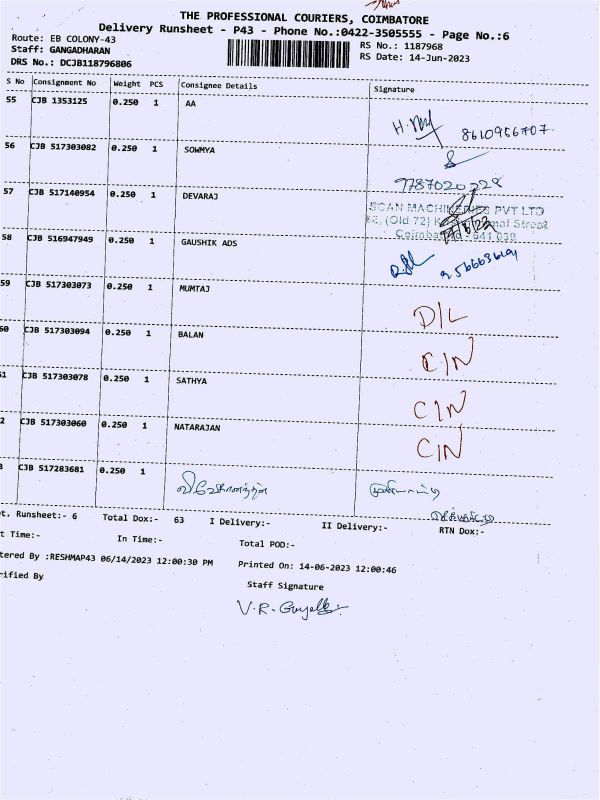 THE PROFESSIONAL COURIERS, COIMBATORE
Delivery Runsheet - P43 - Phone No.:0422-3505555 - Page No.:6
Route: EB COLONY-43 RS No.: 1187968
Staff: GANGADHARAN RS Date: 14-Jun-2023
DRS No.: DCJB118796806
S No Consignment No Weight PCS Consignee Details Signature
55 CJB 1353125 0.250 1 AA
8610956707
56 CJB 517303082 0.250 1 SOWMYA
9787020228
57 CJB 517140954 0.250 1 DEVARAJ
SCAN MACHINERIES PVT LTD
(Old 72) Street
Coimbatore - 641 038
58 CJB 516947949 0.250 1 GAUSHIK ADS
59 CJB 517303073 0.250 1 MUMTAJ D/L
60 CJB 517303094 0.250 1 BALAN C/N
1 CJB 517303078 0.250 1 SATHYA C/N
2 CJB 517303060 0.250 1 NATARAJAN C/N
3 CJB 517283681 0.250 1
t. Runsheet:- 6 Total Dox:- 63 I Delivery:- II Delivery:- RTN Dox:-
t Time:- In Time:- Total POD:-
tered By :RESHMAP43 06/14/2023 12:00:30 PM Printed On: 14-06-2023 12:00:46
rified By Staff Signature